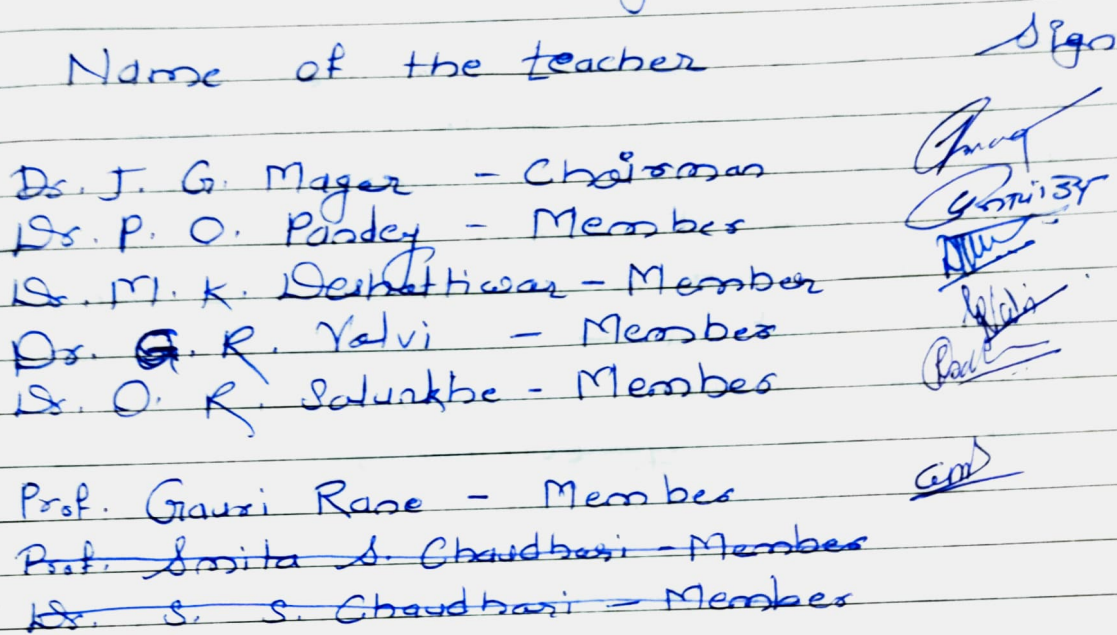 Name of the teacher Sign
Dr. J. G. Mager - Chairman
Dr. P. O. Pandey - Member
Dr. M. K. Deshattiwar - Member
Dr. G. R. Valvi - Member
Dr. O. R. Salunkhe - Member
Prof. Gauri Rane - Member
Prof. Smita S. Chaudhari - Member
Dr. S. S. Chaudhari - Member